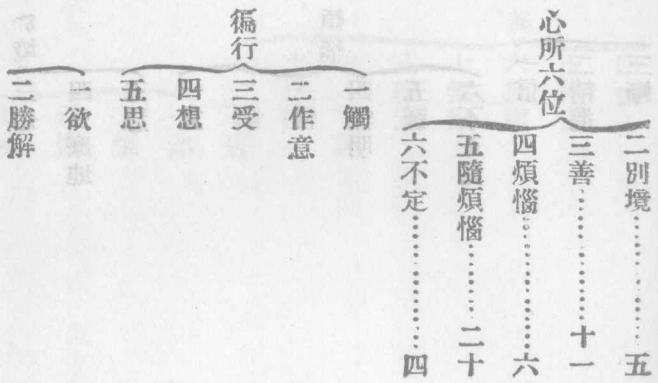 心所六位
二別境……五
三善……十一
四煩惱……六
五隨煩惱……二十
六不定……四
徧行
一觸
二作意
三受
四想
五思
欲
二勝解